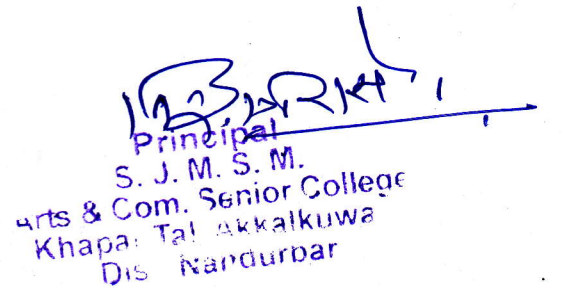 Principal
S. J. M. S. M.
Arts & Com. Senior College
Khapar Tal. Akkalkuwa
Dis Nandurbar